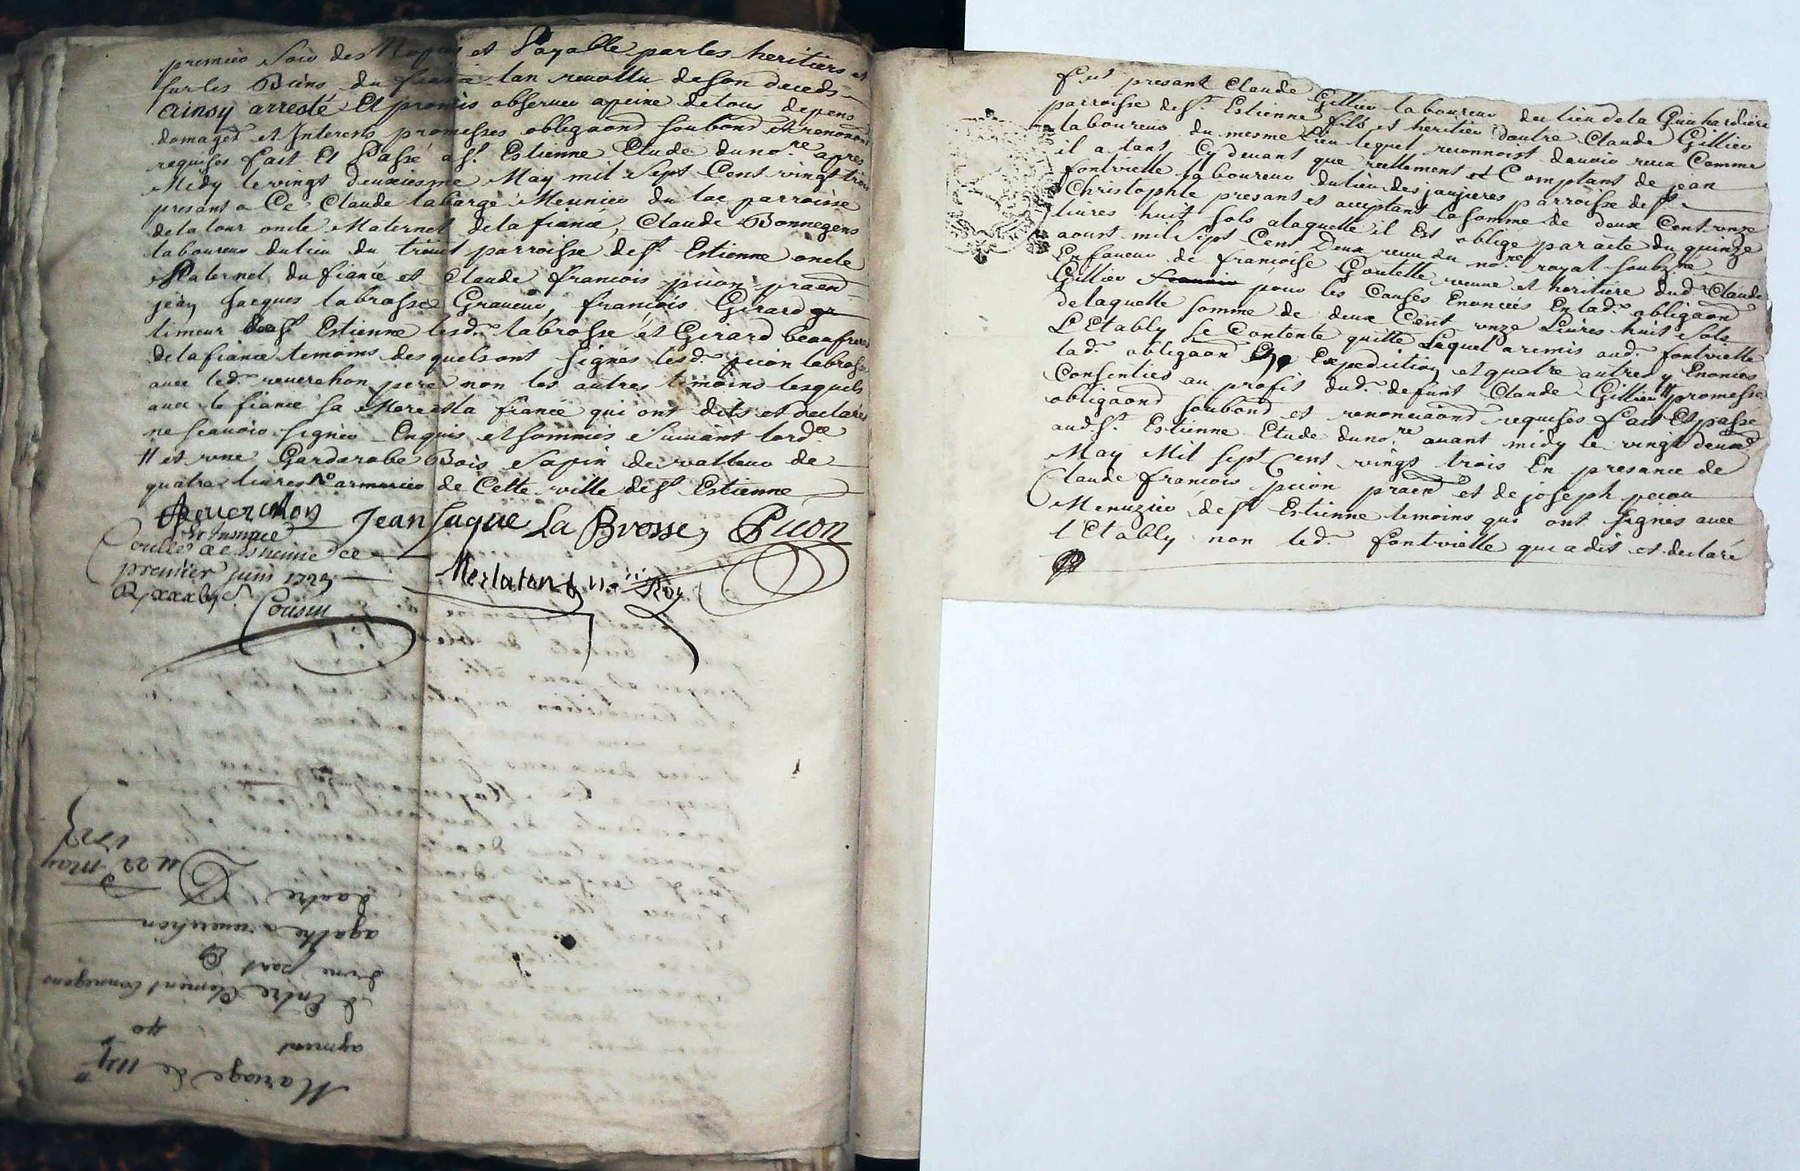 premier Soir des Nopces et Payable par les heritiers et
sur les Biens du fiancé lan revollu de son deceds
ainsy arresté Et promis observer a peine de tous depens
domages et Interests promesses obligaõns soubõns et renonõns
requises fait Et Passé a St. Estienne Etude du nore. apres
Midy le vingt deuxiesme May mil Sept Cent vingt trois
presant a Ce Claude labarge Meunier du lac parroisse
de la tour oncle Maternel de la fiancé, Claude Bonnegens
laboureur du lieu du parroisse de St. Estienne oncle
Paternel du fiancé et Claude françois picon praen
jean Jacques labrosse Graveur françois Girard
limeur de St. Estienne lesds. labrosse et Girard beaufreres
de la fiancé temoins desquels ont signés lesds. picon labrosse
avec led. reverchon pere non les autres temoins lesquels
avec le fiancé sa Mere et la fiancé qui ont dits et declares
ne scavoir signer Enquis et sommés Suivant lordce
et une Gardarobe Bois Sapin de valleur de
quatre livres armurier de Cette ville de St. Estienne
Reverchon
Jean Jaque La Brosse
Picon
Coullé a St Etienne ce
premier juin 1723
Cousin
Merlaton
nore Roy
Mariage de
ayment
40
d Entre Clement bonnegens
dune part &
agathe reverchon
dautre
Du 22 may
1723
fut presant Claude Gillier laboureur du lieu de la
parroisse de St. Estienne fils et heritier dautre Claude Gillier
laboureur du mesme Lieu lequel reconnoist davoir receu Comme
il a tant Cy devant que reellement et Comptant de jean
fontvielle laboureur du lieu des parroisse de St.
Christophle presant et acceptant la somme de deux Cent onze
livres huit Sols a laquelle il Est oblige par acte du quinze
aoust mil Sept Cent Deux receu du nore. royal soubzné
En faveur de françoise Goutelle veuve et heritiere dud. Claude
Gillier pour les Causes Enoncées En lad. obligaõn
de laquelle somme de deux Cent onze Livres huit Sols
L'Etably Se Contente quitte Lequel a remis aud. fontvielle
lad. obligaõn Expedition et quatre autres y Enoncés
Consenties au profit dud. deffunt Claude Gillier promesse
obligaõns soubõns et renonciaõns requises fait Et passé
aud. St. Estienne Etude du nore. avant midy le vingt deuxe
May Mil sept Cent vingt trois En presance de
Claude françois picon praen et de joseph picon
Menuzier de St Estienne temoins qui ont signés avec
l'Etably non led. fontvielle qui a dit et declaré